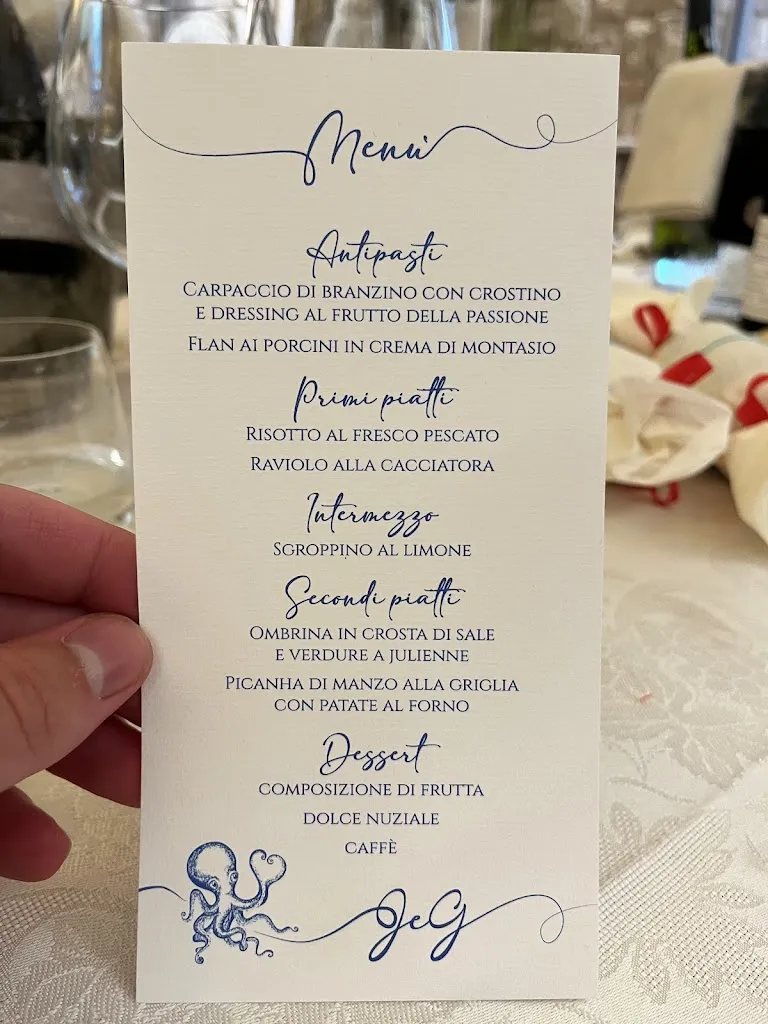 Menù
Antipasti
Carpaccio di branzino con crostino
e dressing al frutto della passione
Flan ai porcini in crema di montasio
Primi piatti
Risotto al fresco pescato
Raviolo alla cacciatora
Intermezzo
Sgroppino al limone
Secondi piatti
Ombrina in crosta di sale
e verdure a julienne
Picanha di manzo alla griglia
con patate al forno
Dessert
composizione di frutta
dolce nuziale
caffè
JeG